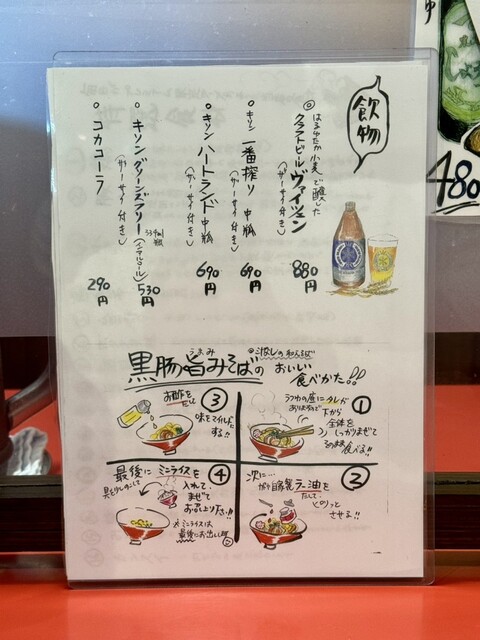 飲物
◎はるゆたか小麦で醸した
クラフトビール ヴァイツェン
(ザーサイ付き) 880円
○キリン 一番搾り 中瓶
(ザーサイ付き) 690円
○キリン ハートランド 中瓶
(ザーサイ付き) 690円
○キリン グリーンズフリー (ノンアルコール)
334ml瓶
(ザーサイ付き) 530円
○コカコーラ 290円
480
黒豚旨みそばの
うまみ
おいしい
食べかた!!
①
下から
全体を
しっかりまぜて
そのまま
食べる!!
②
次に…
自家製ラー油を
たして、
ピリッと
させる!!
③
お酢を
たし
味をマイルドに
する!!
④
最後にミニライスを
入れて、
まぜて
お召し上り下さい!!
※ミニライスは
最後にお出し